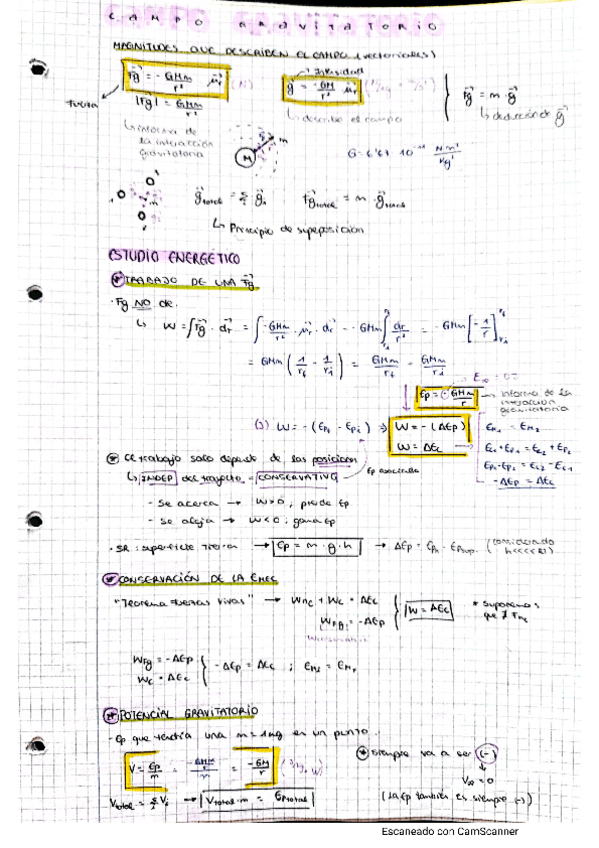 CAMPO GRAVITATORIO
MAGNITUDES QUE DESCRIBEN EL CAMPO (vectoriales)
Fg = - GMm/r² · ur (N)
Intensidad
g = - GM/r² ur
Fg = m · g
↳ deducción de g
Fuerza
|Fg| = GMm/r²
↳ informa de la interacción gravitatoria
↳ describe el campo
M
m
G = 6'67 · 10⁻¹¹ N·m²/kg²
g total = Σ gi
Fg total = m · g total
↳ Principio de superposición
ESTUDIO ENERGÉTICO
* TRABAJO DE UNA Fg
· Fg NO cte.
↳ W = ∫ Fg · dr = ∫ - GMm/r² · ur · dr = - GMm ∫ dr/r² = - GMm [- 1/r]
= GMm (1/rf - 1/ri) = GMm/rf - GMm/ri
Ep = (-) GMm/r → informa de la interacción gravitatoria
(J) W = - (Epf - Epi) → W = - (ΔEp)
W = ΔEc
Em1 = Em2
Ec1 + Ep1 = Ec2 + Ep2
Ep1 - Ep2 = Ec2 - Ec1
- ΔEp = ΔEc
* El trabajo solo depende de las posición
↳ INDEP del trayecto = CONSERVATIVO
Ep asociada
- Se acerca → W > 0 ; pierde Ep
- Se aleja → W < 0 ; gana Ep
· SR: superficie Tierra → Ep = m · g · h → ΔEp = Eph - Epsup. (considerado h<<<<R)
* CONSERVACIÓN DE LA EMEC
"Teorema fuerzas vivas" → Wnc + Wc = ΔEc
W = ΔEc
* Suponemos que ∄ Fnc
WFg = - ΔEp
Wc = ΔEc
- ΔEp = ΔEc ;
* POTENCIAL GRAVITATORIO
- Ep que tendría una m = 1 kg en un punto.
V = Ep/m = - GMm/r / m = - GM/r
* Siempre va a ser (-)
V∞ = 0
Vtotal = Σ Vi → Vtotal · m = Ep total
(La Ep también es siempre (-))
Escaneado con CamScanner